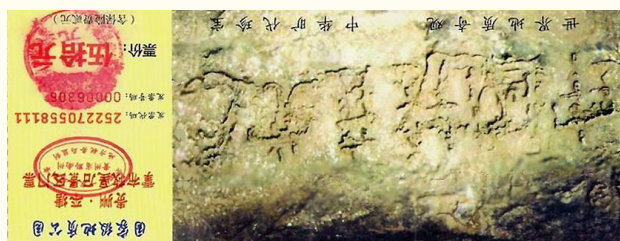 世界地质奇观 中华旷代珍宝
国家级地质公园
贵州·平塘
掌布救星石景区门票
发票代码：252270558111
发票号码：00006306
票价：伍拾元
（含保险费贰元）